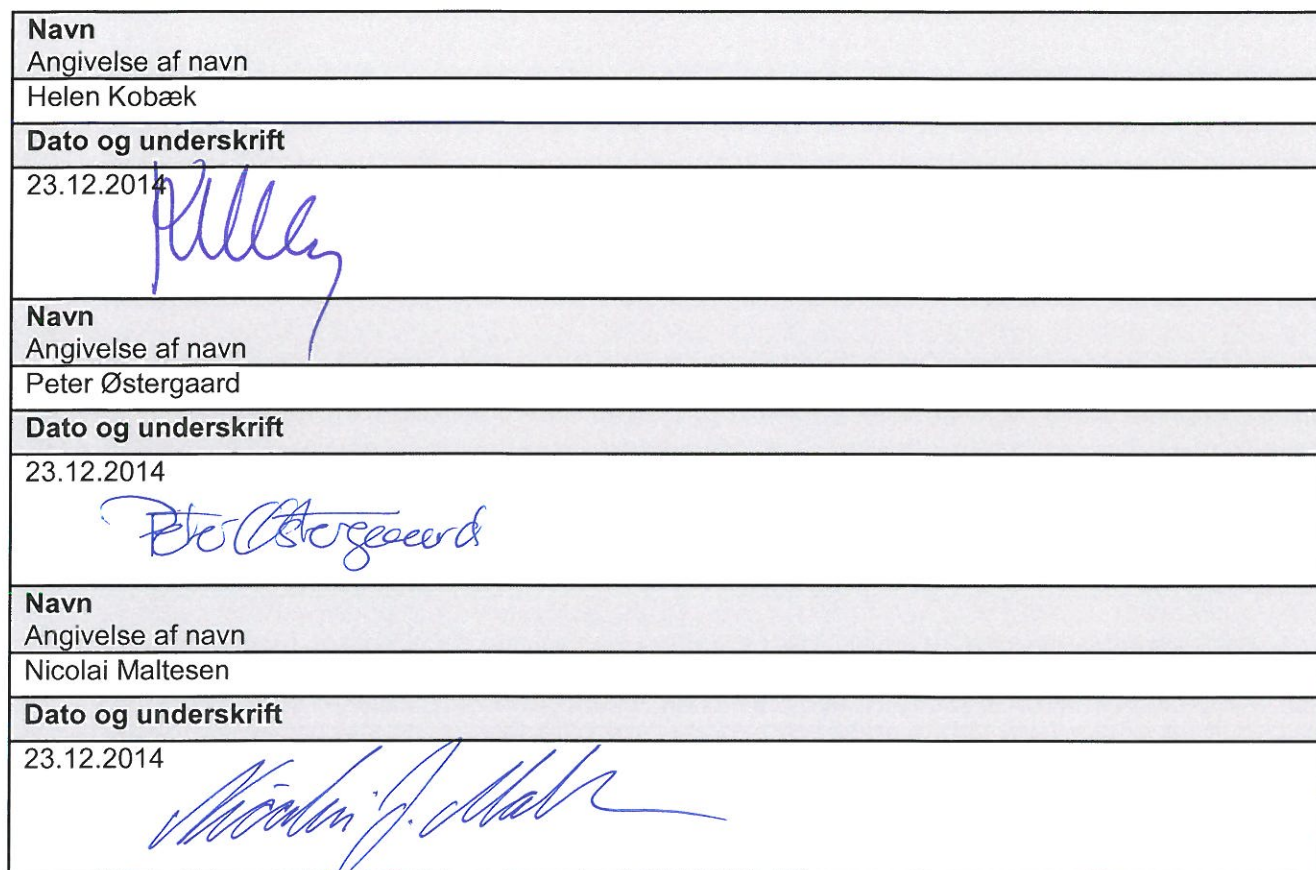 Navn
Angivelse af navn
Helen Kobæk
Dato og underskrift
23.12.2014
Navn
Angivelse af navn
Peter Østergaard
Dato og underskrift
23.12.2014
Peter Østergaard
Navn
Angivelse af navn
Nicolai Maltesen
Dato og underskrift
23.12.2014
Nicolai J.